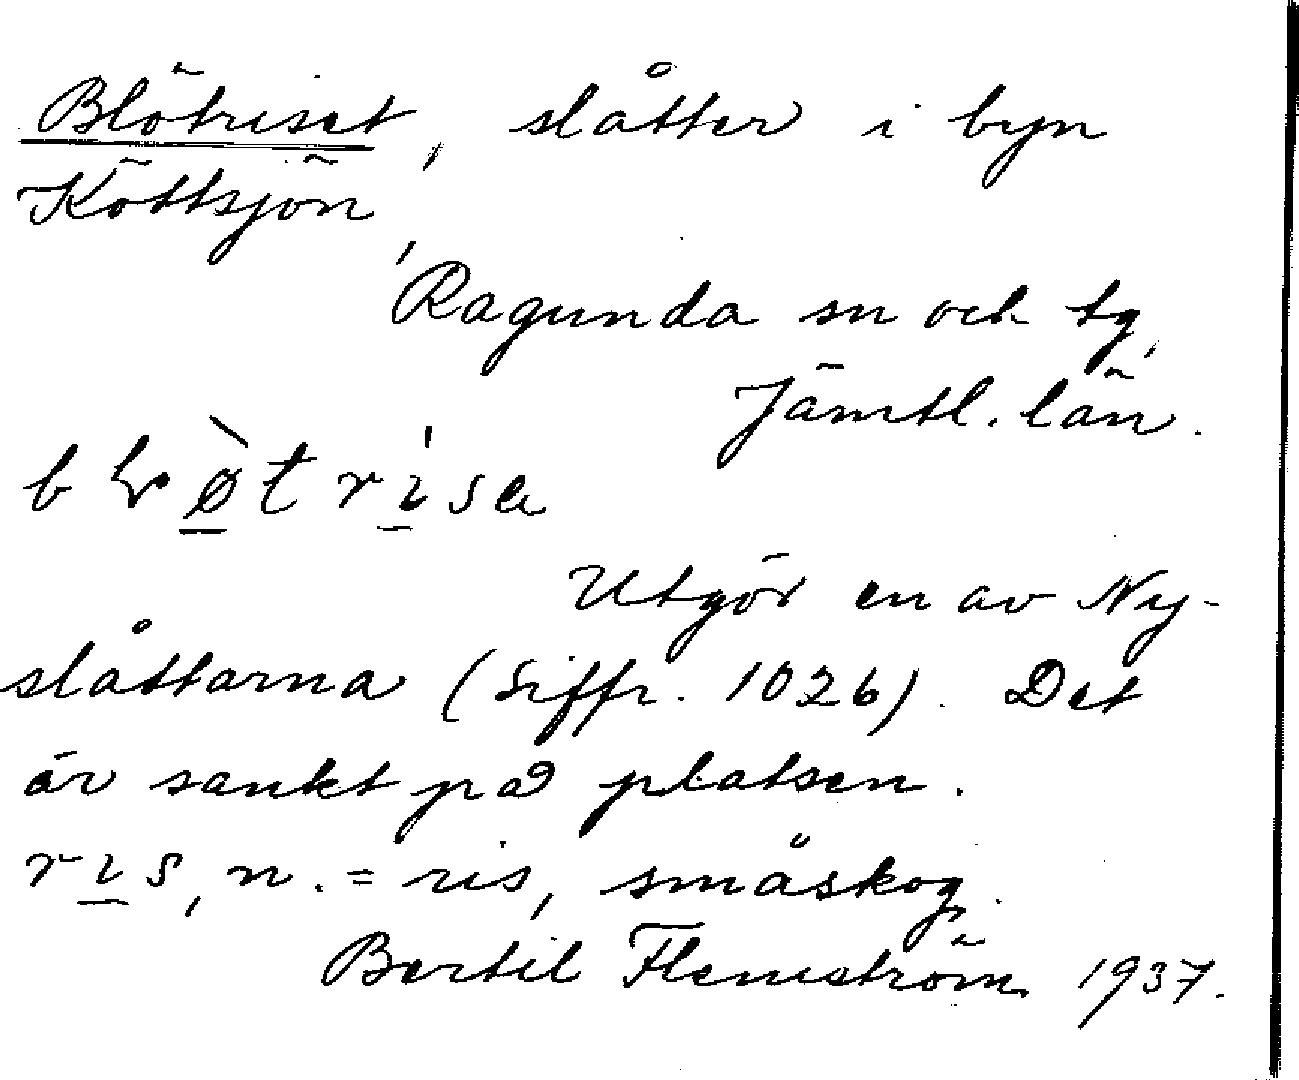 Blötriset, slåtter i byn
Köttsjön,
Ragunda sn och tg,
Jämtl. län.
Utgör en av Ny-
slåttarna (Siffr. 1026). Det
är sankt på platsen.
rıs, n. = ris, småskog.
Bertil Flemström 1937.